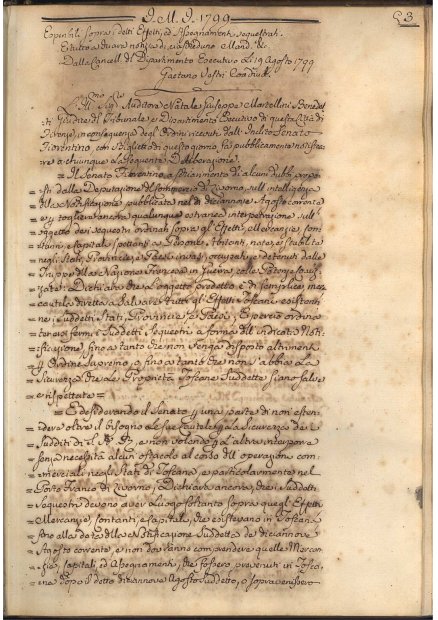 I. M. I. 1799
53
Esponibili sopra i detti Effetti, ed Assegnamenti sequestrati
E tutto a divara notizia di ciascheduno Mand. &c.
Dalla Cancell. del Dipartimento Esecutivo li 19 Agosto 1799
Gaetano Vestri Coadiut.
L'Ill.mo Sig. Auditore Natale Giuseppe Martellini Benedet
ti Giudice di Tribunale e Dipartimento Esecutivo di questa Città di
Firenze, in conseguenza degl'Ordini ricevuti dall'Inclito Senato
Fiorentino, con Biglietto di questo giorno fa pubblicamente notifica
re a chiunque la seguente Deliberazione
= Il Senato Fiorentino a schiarimento di alcuni dubbi propo
= sti dalla Deputazione del Commercio di Livorno, sull'intelligenza
= della Notificazione pubblicata nel dì diciannove Agosto corrente
= e p togliere ancora qualunque estranea interpetrazione sull'
= oggetto dei sequestri ordinati sopra gl'Effetti, Mercanzie, Con
= tanti, e Capitali spettanti a Persone Abitanti, nate, e stabilite
= negli Stati, Provincie, e Paesi invasi, occupati, e detenuti dalle
= Truppe della Nazione Francese in guerra colle Potenze Coaliz
= zate: Dichiara che l'oggetto predetto è di semplice mera
= cautela diretta a salvare tutti gl'Effetti Toscani esistenti
= ne' suddetti Stati, Provincie e Paesi, e perciò ordina
= tenersi fermi i suddetti sequestri a forma dell'indicata Noti
= ficazione, fino a tanto che non venga disposto altrimenti
= p Ordine Supremo, o fino a tanto che non s'abbia la
= sicurezza che le Proprietà Toscane suddette siano salve
= e rispettate =
= E desiderando il Senato p una parte di non esten
= dere oltre il bisogno le sue Cautele p la sicurezza de'
= Sudditi di S. A. R., e non volendo p l'altra interporre
= senza necessità alcun ostacolo al corso dell'operazioni com
= merciali negli Stati di Toscana, e particolarmente nel
= Porto Franco di Livorno, Dichiara ancora, che i suddetti
= sequestri devono aver luogo soltanto sopra quegl'Effetti
= Mercanzie, Contanti, e Capitali, che esistevano in Toscana
= fino alla data della Notificazione suddetta de' diciannove
= Agosto corrente, e non dovranno comprendere quelle Mercan
= zie, Capitali, ed Assegnamenti, che fossero pervenuti in Tosca
= na dopo il detto dì diciannove Agosto suddetto, o sopravvenissero